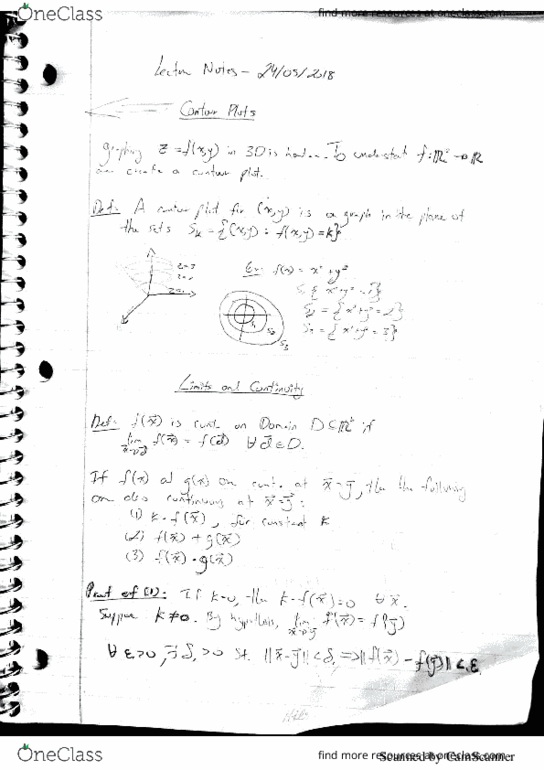 OneClass
find more resources at oneclass.com
Lecture Notes - 24/05/2018
Contour Plots
graphing z = f(x,y) in 3D is hard... To understand f: ℝ² → ℝ
create a contour plot.
Def: A contour plot for (x,y) is a graph in the plane of
the sets Sₖ = {(x,y) : f(x,y) = k}
z=3
Ex: f(x) = x² + y²
{ x² + y² = 1}
= { x² + y² = 2}
= { x² + y² = 3}
S₃
Limits and Continuity
Def: f(x⃗) is cont. on Domain D ⊆ ℝ² if
lim f(x⃗) = f(d⃗) ∀ d⃗ ∈ D.
If f(x) and g(x) are cont. at x⃗ = y⃗, then the following
are also continuous at x⃗ = y⃗:
(1) k · f(x⃗), for constant k
(2) f(x⃗) + g(x⃗)
(3) f(x⃗) · g(x⃗)
Proof of (1): If k=0, then k · f(x⃗) = 0 ∀ x⃗.
Suppose k ≠ 0. By hypothesis, lim f(x⃗) = f(y⃗)
∀ ε > 0, ∃ δ, > 0 st. ||x⃗ - y⃗|| < δ, => || f(x⃗) - f(y⃗) || < ε.
OneClass
find more resources at oneclass.com
Scanned by CamScanner